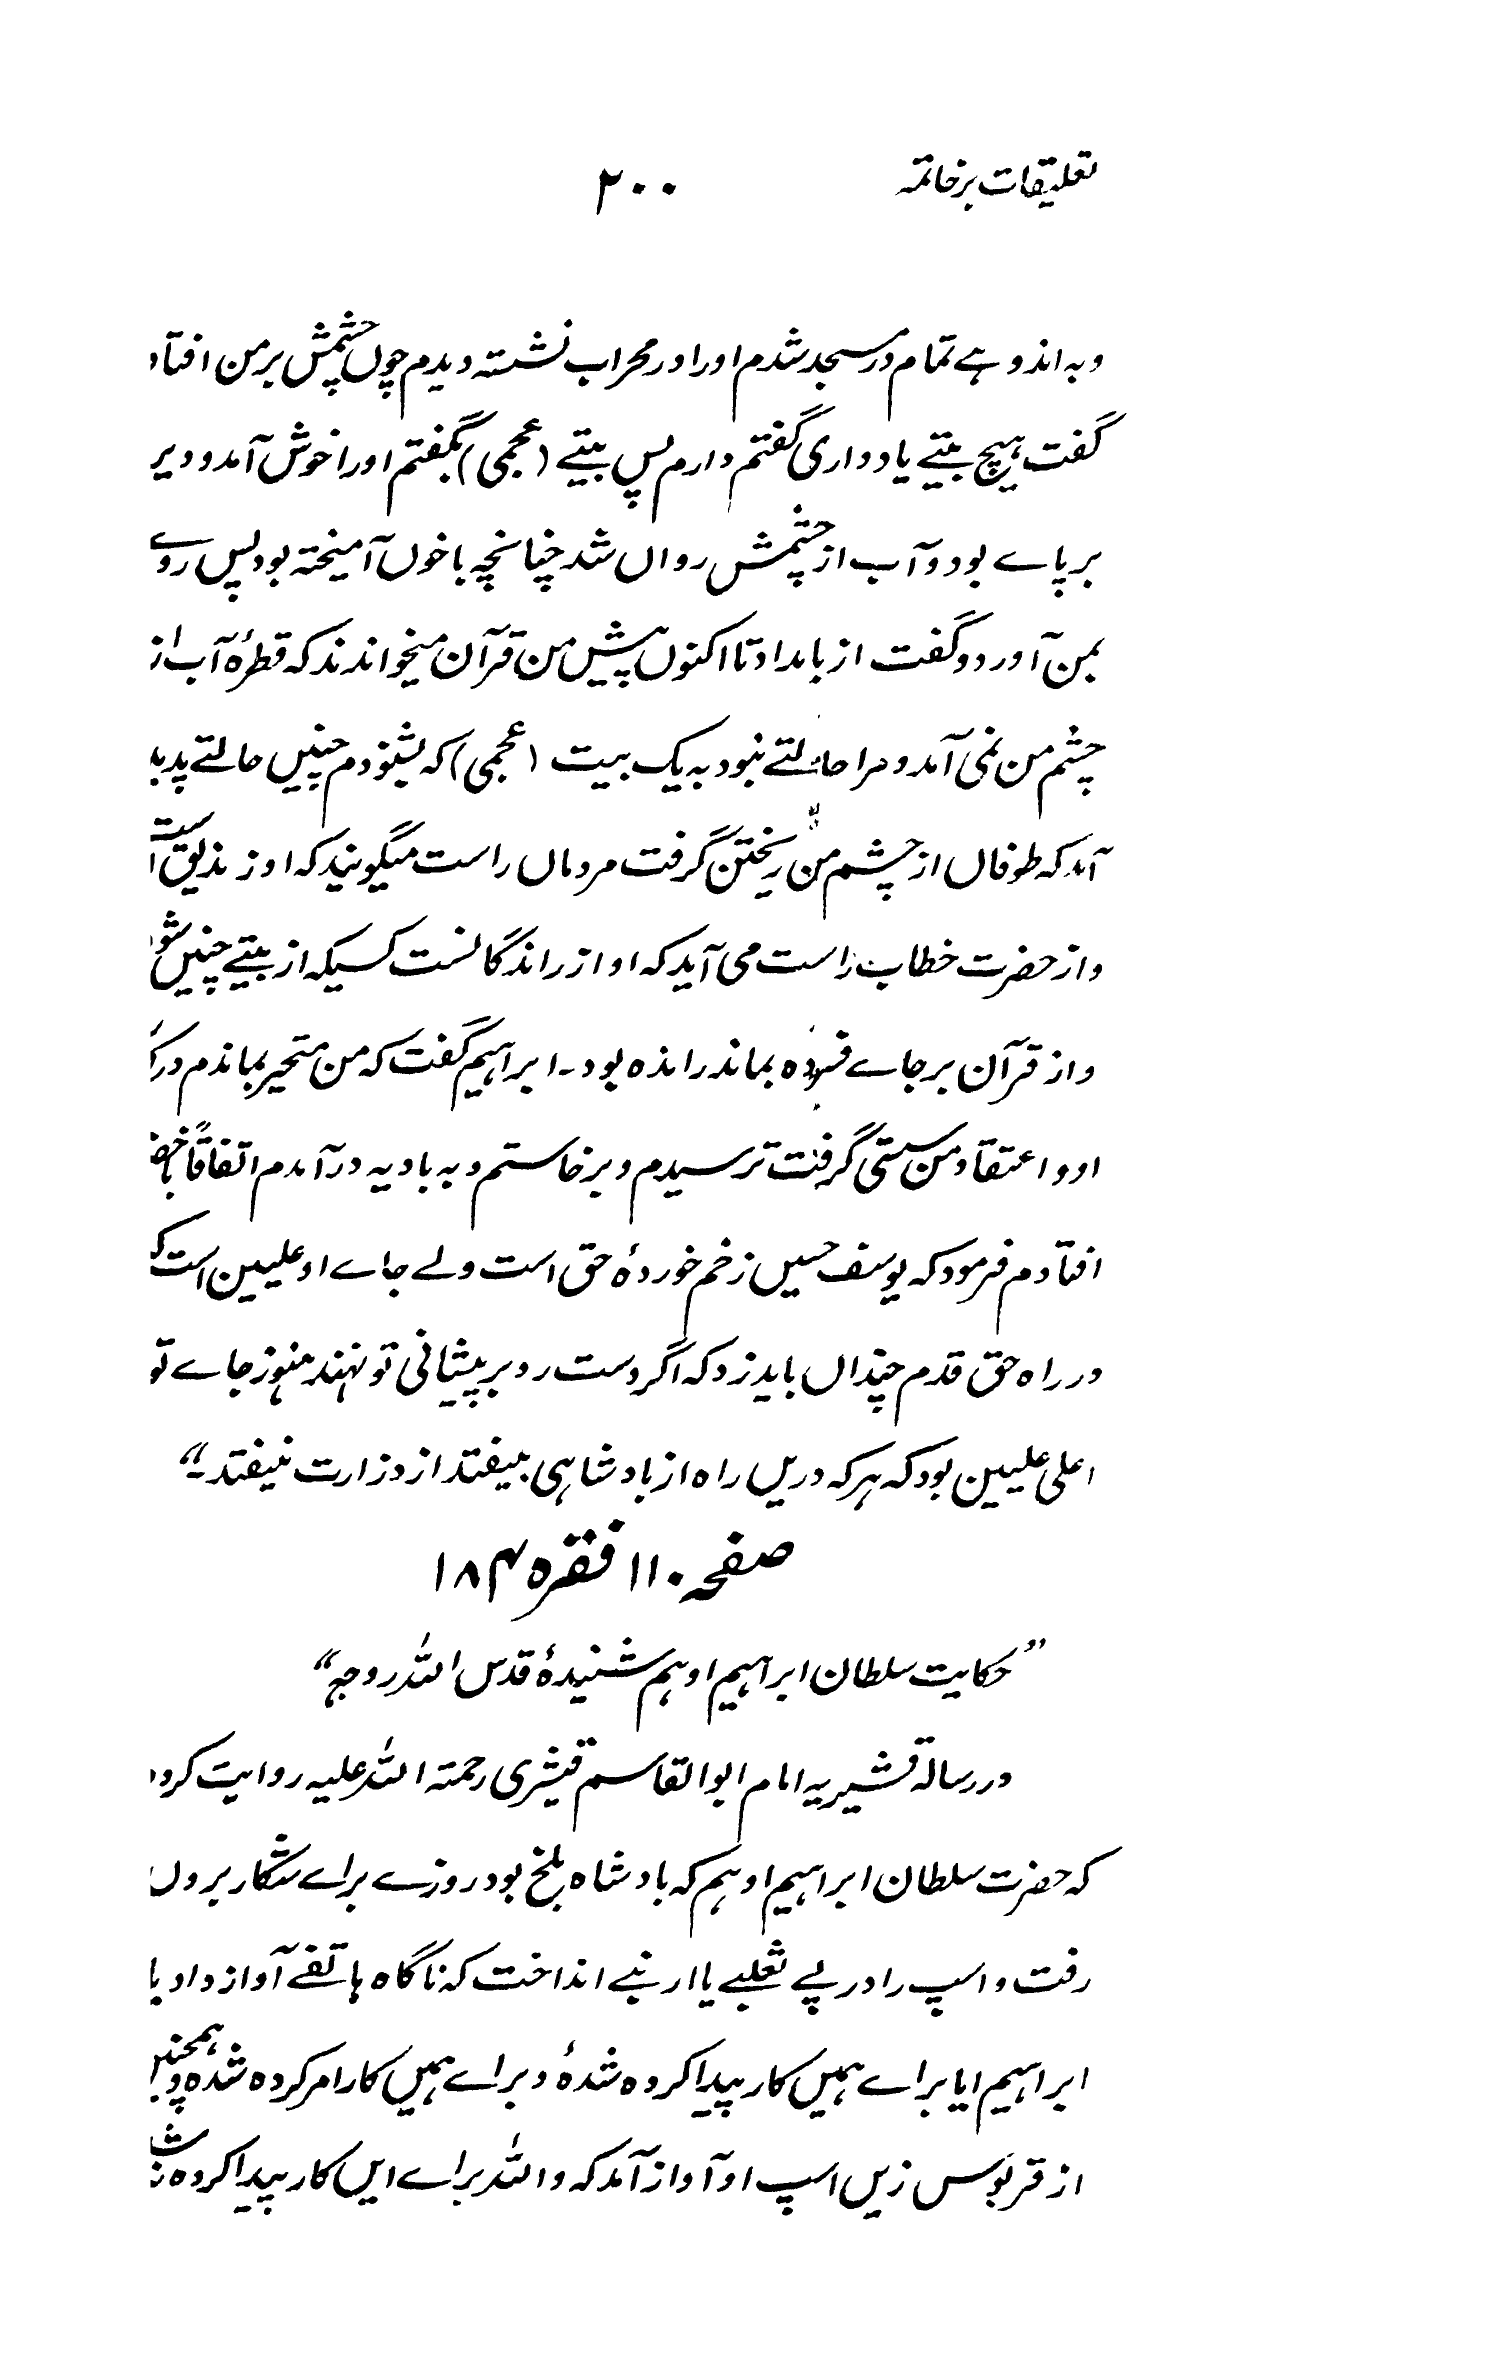 تعلیقات برخاتمہ ۲۰۰
وبہ اندوہے تمام در مسجد شدم اورا در محراب نشستہ دیدم چوں چشمش بر من افتاد
گفت ہیچ بیتے یاد داری گفتم دارم پس بیتے (عجمی) بگفتم اورا خوش آمد و دیر
برپاے بود و آب از چشمش رواں شد چنانچہ باخوں آمیختہ بود پس روے
بمن آورد و گفت از بامداد تا اکنوں پیش من قرآن میخواندند کہ قطرۂ آب از
چشم من نمی آمد و مرا حالتے نبود بہ یک بیت (عجمی) کہ بشنودم چنیں حالتے پدید
آمد کہ طوفاں از چشم من ریختن گرفت مردماں راست میگویند کہ او زندیق است
و از حضرت خطاب راست می آید کہ او از راندگانست کسیکہ از بیتے چنیں شود
و از قرآن برجاے فسردہ بماند راندہ بود۔ ابراہیم گفت کہ من متحیر بماندم در
او و اعتقاد من سستی گرفت ترسیدم و برخاستم و بہ بادیہ در آمدم اتفاقاً باخضر
افتادم فرمود کہ یوسف حسیں زخم خوردۂ حق است ولے جاے او علیین است کہ
در راہ حق قدم چنداں باید زد کہ اگر دست رد بر پیشانی تو نہند ہنوز جاے تو
اعلی علیین بود کہ ہرکہ دریں راہ از بادشاہی بیفتد از وزارت نیفتد۔“
صفحہ ۱۱۰ فقرہ ۱۸۴
”حکایت سلطان ابراہیم اوہم شنیدۂ قدس اللہ روحہ“
در رسالہ قشیریہ امام ابوالقاسم قیشری رحمتہ اللہ علیہ روایت کرد
کہ حضرت سلطان ابراہیم اوہم کہ بادشاہ بلخ بود روزے براے شکار بروں
رفت و اسپ را در پے ثعلبے یا ارنبے انداخت کہ ناگاہ ہاتفے آواز داد یا
ابراہیم ایا براے ہمیں کار پیدا کردہ شدۂ و براے ہمیں کار امر کردہ شدۂ و ہمچنیں
از قربوس زیں اسپ او آواز آمد کہ واللہ براے ایں کار پیدا کردہ